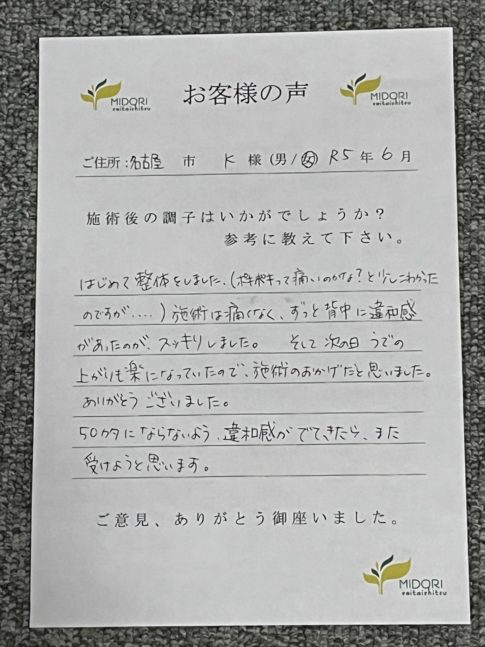 MIDORI
seitaishitsu
お客様の声
MIDORI
seitaishitsu
ご住所:名古屋 市 K 様(男/女) R5年6月
施術後の調子はいかがでしょうか?
参考に教えて下さい。
はじめて整体をしました。(ボキボキって痛いのかな?と少しこわかった
のですが....)施術は痛くなく、ずっと背中に違和感
があったのが、スッキリしました。 そして次の日 うでの
上がりも楽になっていたので、施術のおかげだと思いました。
ありがとうございました。
50カタにならないよう、違和感がでてきたら、また
受けようと思います。
ご意見、ありがとう御座いました。
MIDORI
seitaishitsu